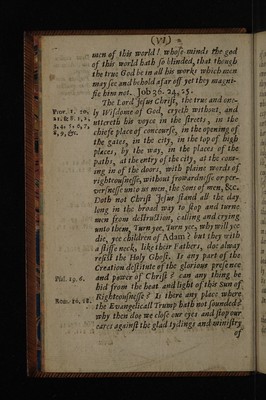 (VI.)
men of this world! whose minds the god
of this world hath so blinded, that though
the true God be in all his works which men
may see and behold afar off yet they magni-
fie him not. Job 36. 24, 25.
The Lord Jesus Christ, the true and one-
ly Wisdome of God, cryeth without, and
uttereth his voyce in the streets, in the
chiefe place of concourse, in the opening of
the gates, in the city, in the top of high
places, by the way, in the places of the
paths, at the entry of the city, at the com-
ing in of the doors, with plaine words of
righteousnesse, without frowardnesse or per-
versnesse unto us men, the Sons of men, &c.
Doth not Christ Jesus stand all the day
long in the broad way to stop and turne
men from destruction, calling and crying
unto them, Turn yee, Turn yee, why will yee
die, yee children of Adam? but they with
a stiffe neck, like their Fathers, doe alway
resist the Holy Ghost. Is any part of the
Creation destitute of the glorious presence
and power of Christ? can any thing be
hid from the heat and light of this Sun of
Righteousnesse? Is there any place where
the Evangelicall Trump hath not sounded?
why then doe we close our eyes and stop our
eares against the glad tydings and ministry
of
Prov. 1. 20,
21. & 8. 1, 2,
3, 4, 5, 6, 7,
8, 9, &c.
Psal. 19. 6.
Rom. 10. 18.